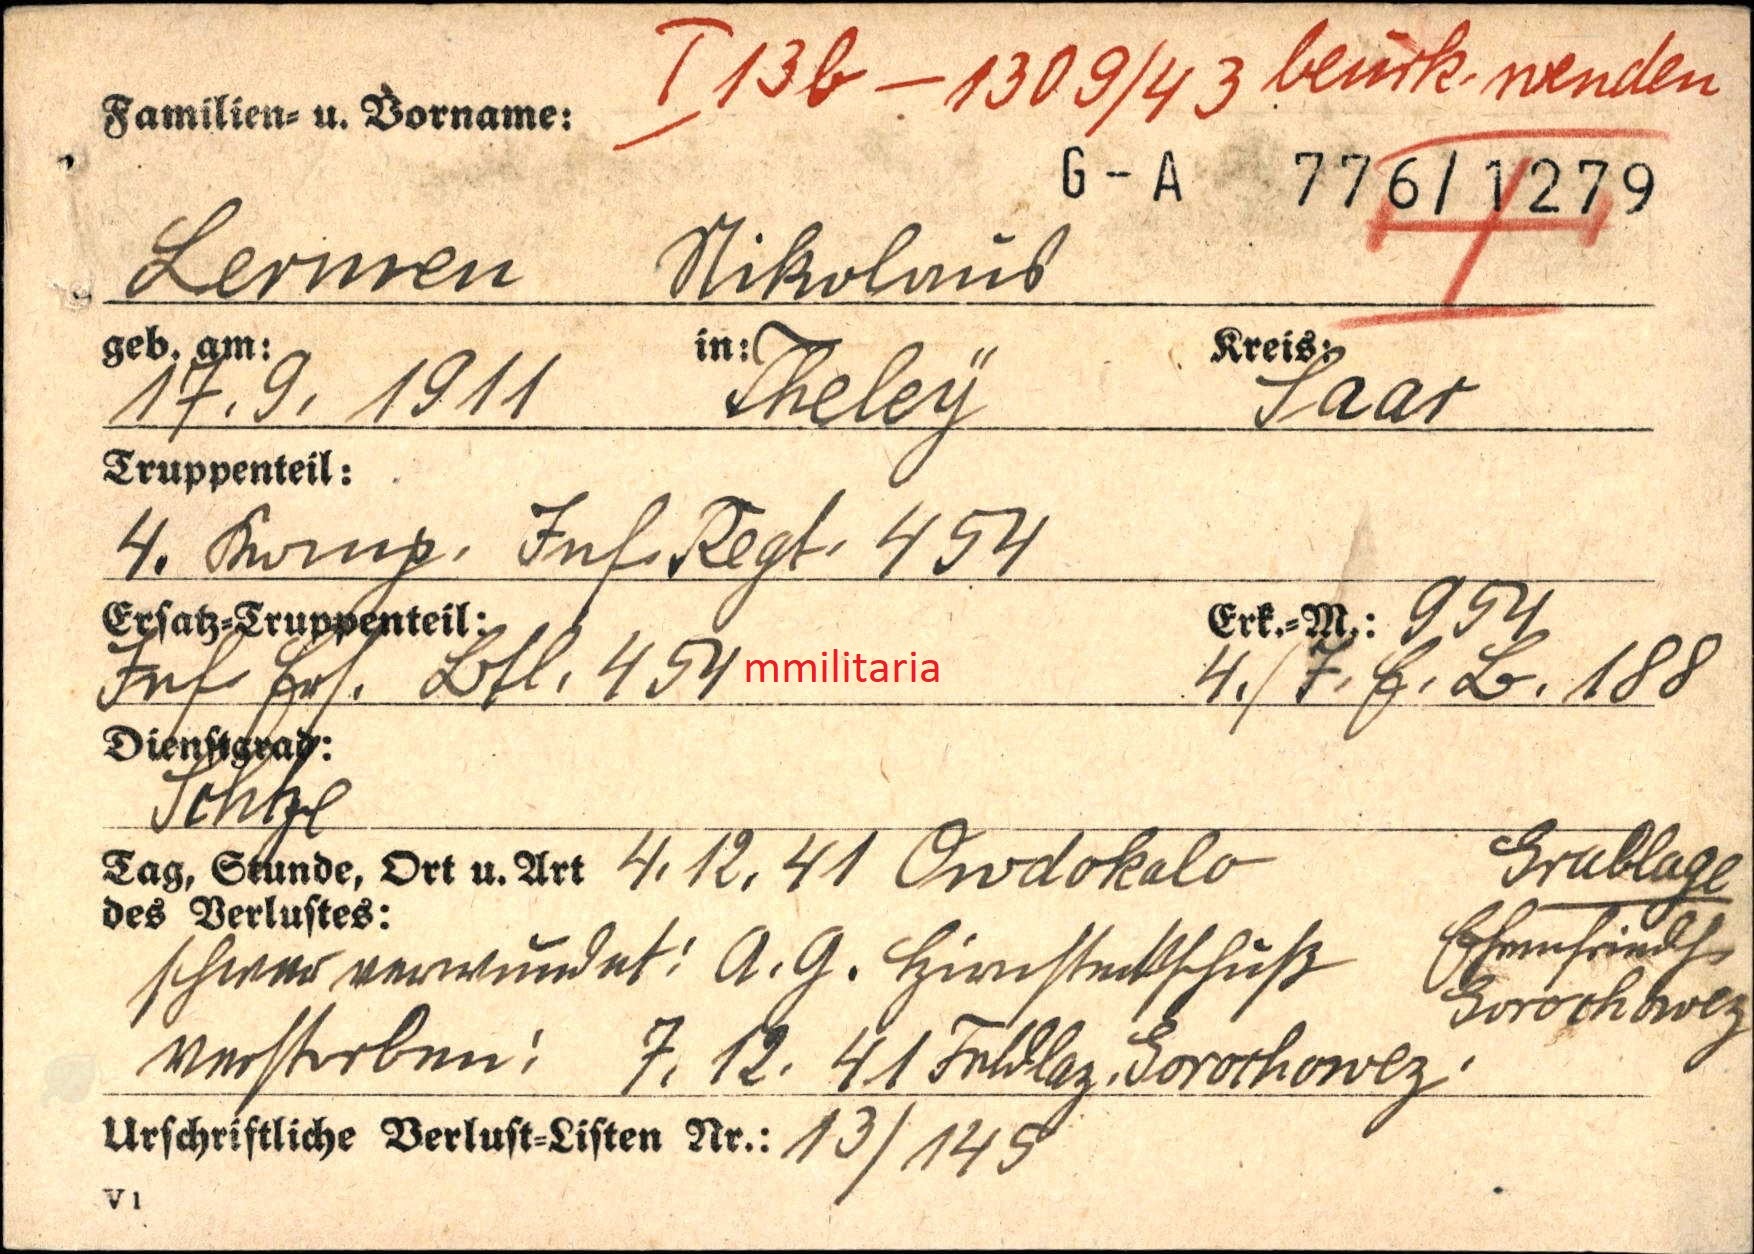 I 13b – 1309/43 beurk. wenden
Familien- u. Vorname:
G-A 776/1279
Lermen Nikolaus
geb. am: in: Kreis:
17.9. 1911 Theleÿ Saar
Truppenteil:
4. Komp. Inf. Regt. 454
Ersatz-Truppenteil: Erk.-M.: 954
Inf. Ers. Btl. 454 mmilitaria 4./I.E.B. 188
Dienstgrad:
Schtze
Tag, Stunde, Ort u. Art 4.12.41 Owdokalo Grablage
des Verlustes:
schwer verwundet: A.G. Hirnsteckschuß Ehrenfriedh.
Gorochowez
verstorben: 7.12.41 Feldlaz. Gorochowez.
Urschriftliche Verlust-Listen Nr.: 13/145
V 1